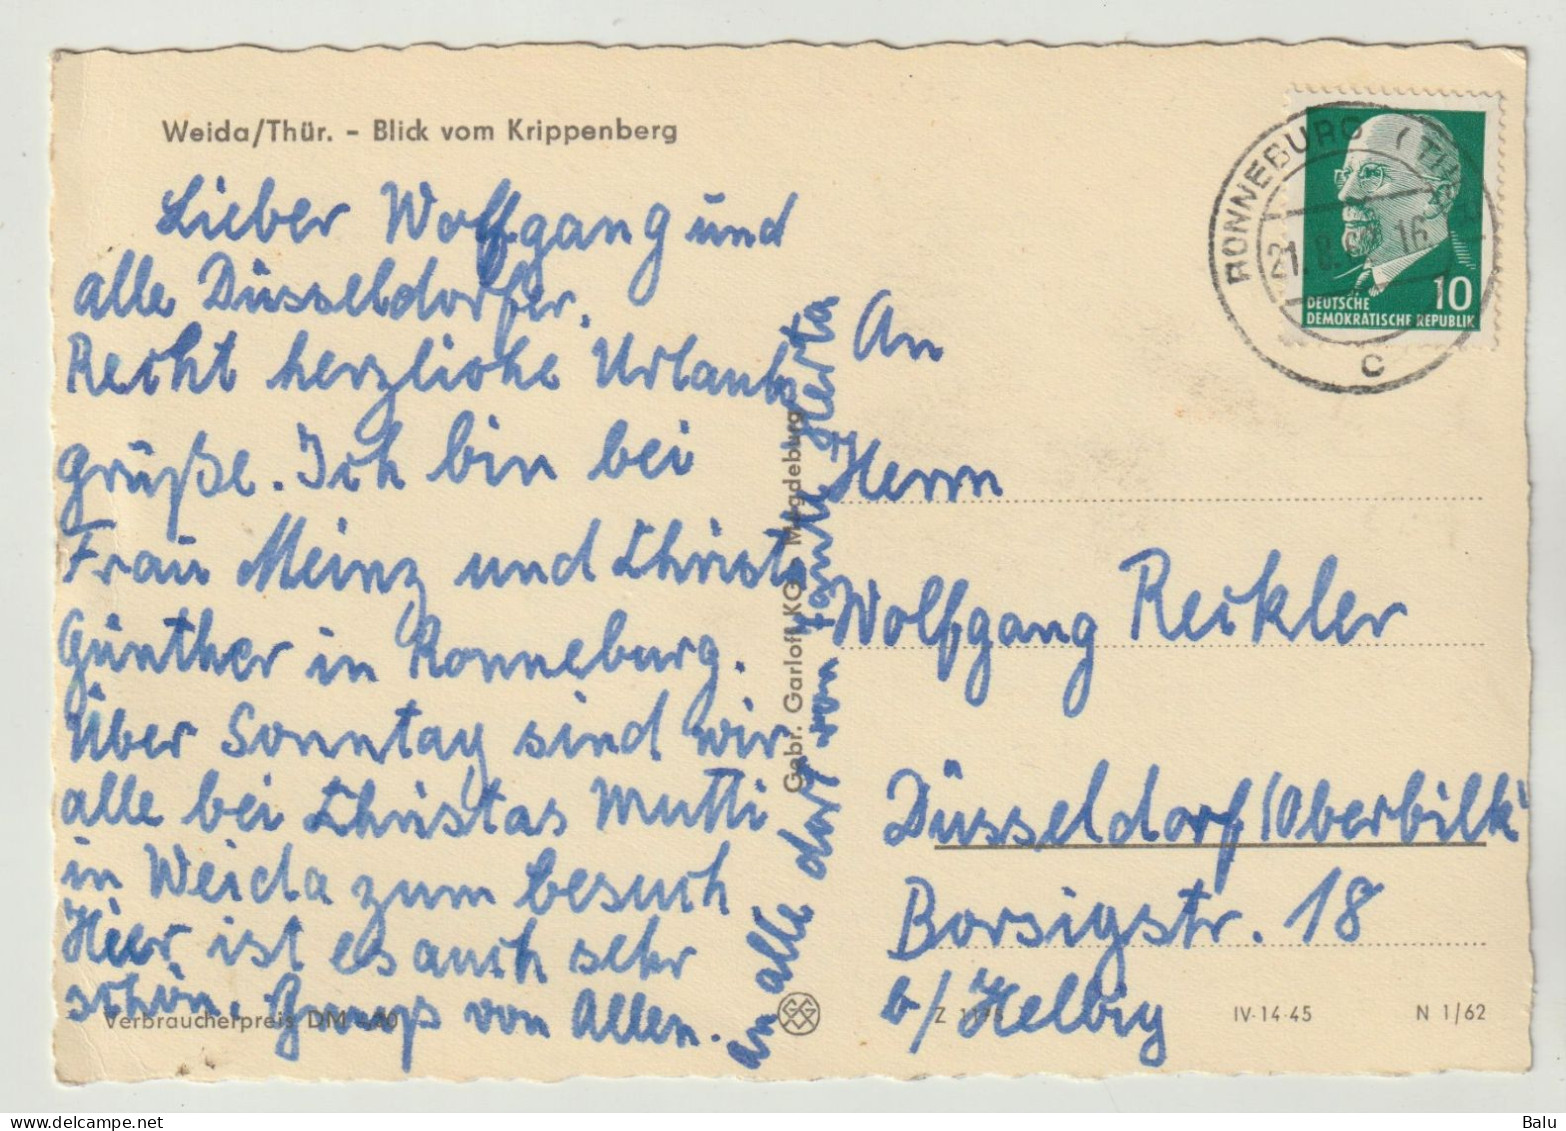 Weida/Thür. - Blick vom Krippenberg
Lieber Wolfgang und
alle Düsseldorfer.
Recht herzliche Urlaubs
grüße. Ich bin bei
Frau Meinz und Christa
Günther in Ronneburg.
Über Sonntag sind wir
alle bei Christas Mutti
in Weida zum besuch
Hier ist es auch sehr
schön. Gruß von Allen.
an alle dort von Tante Herta
Verbraucherpreis DM
Gebr. Garloff KG Magdeburg
RONNEBURG (THÜR)
21.8.6 16
c
10
DEUTSCHE
DEMOKRATISCHE REPUBLIK
An
Herrn
Wolfgang Reickler
Düsseldorf/Oberbilk
Borsigstr. 18
b/Helbig
Z
IV-14-45
N 1/62
Balu